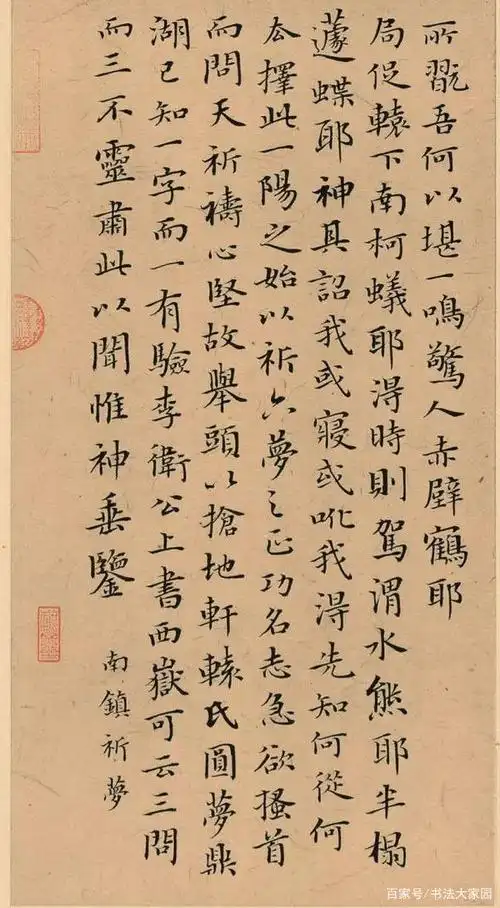 所翫吾何以堪一鳴驚人赤壁鶴耶
局促轅下南柯蟻耶得時則駕渭水熊耶半榻
蘧蝶耶神其詔我或寢或吪我得先知何從何
去擇此一陽之始以祈六夢之正功名志急欲搔首
而問天祈禱心堅故舉頭以搶地軒轅氏圓夢鼎
湖已知一字而一有驗李衛公上書西嶽可云三問
而三不靈肅此以聞惟神垂鑒
南鎮祈夢
百家号/书法大家园